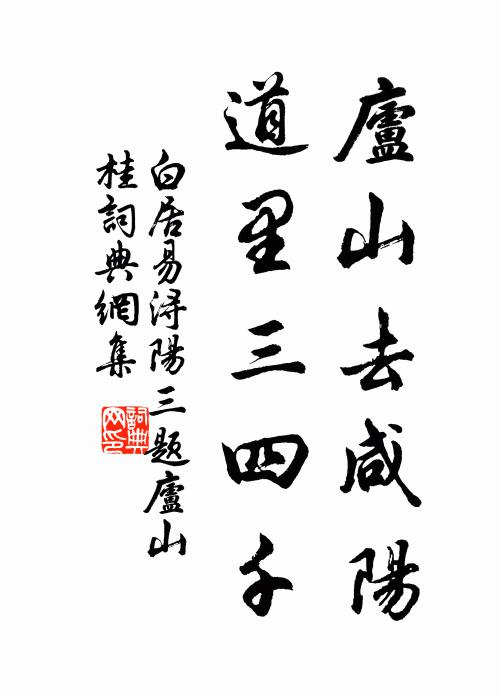 廬山去咸陽
道里三四千
白居易潯陽三題廬山
桂詞典網集
詞典
网印